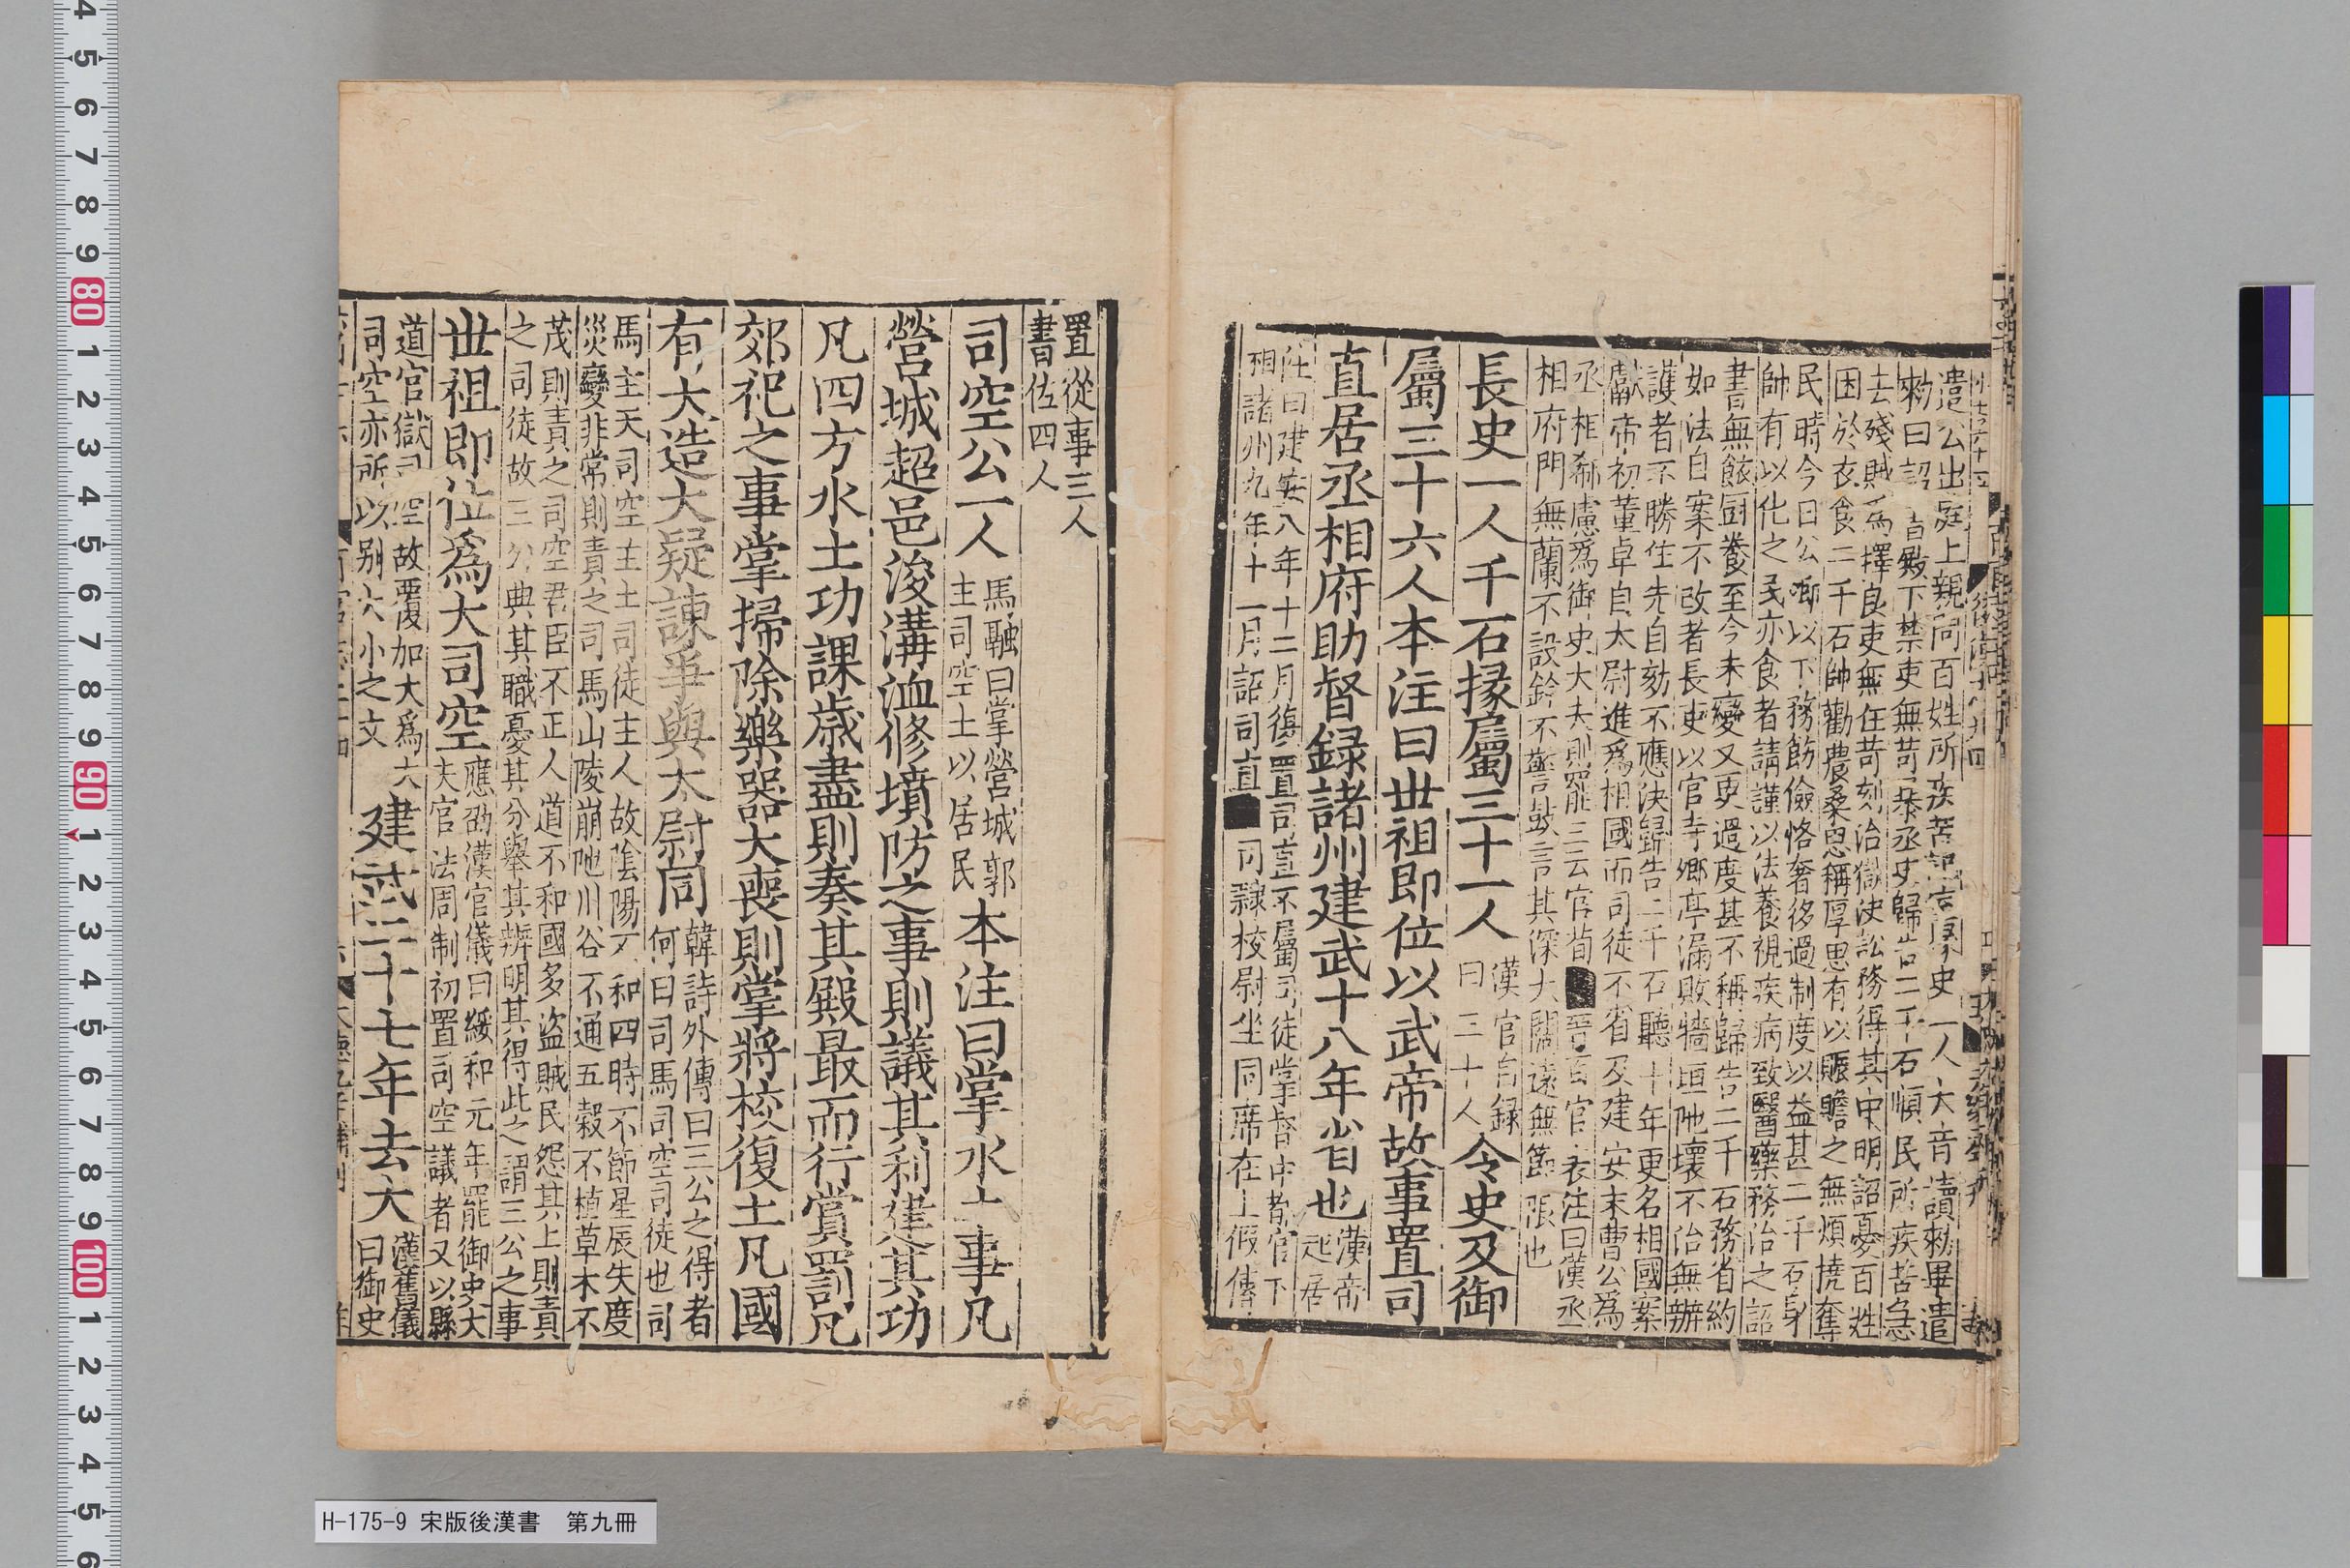 遣公出庭上親問百姓所疾苦記室掾史一人大音讀勑畢遣
勑曰詔書殿下禁吏無苛暴丞史歸告二千石順民所疾苦急
去殘賊爲擇良吏無任苛刻治獄決訟務得其中明詔憂百姓
困於衣食二千石帥勸農桑思稱厚恩有以賑贍之無煩撓奪
民時今日公卿以下務飭儉恪奢侈過制度以益甚二千石身
帥有以化之民亦食者請謹以法養視疾病致醫藥務治之詔
書無餙厨養至今未變又更過度甚不稱歸告二千石務省約
如法自案不改者長吏以官寺鄉亭漏敗牆垣阤壞不治無辦
護者不勝任先自劾不應決歸告二千石聽十年更名相國案
獻帝初董卓自太尉進爲相國而司徒不省及建安末曹公爲
丞相郗慮爲御史大夫則罷三公官荀晉百官表注曰漢丞
相府門無蘭不設鈴不警鼓言其深大闊遠無節限也
長史一人千石掾屬三十一人漢官目録曰三十人令史及御
屬三十六人本注曰世祖即位以武帝故事置司
直居丞相府助督録諸州建武十八年省也漢帝起居
注曰建安八年十二月復置司直不屬司徒掌督中都官不
領諸州九年十一月詔司直司隷校尉坐同席在上假傳
置從事三人
書佐四人
司空公一人馬融曰掌營城郭主司空土以居民本注曰掌水土事凡
營城起邑浚溝洫修墳防之事則議其利建其功
凡四方水土功課歲盡則奏其殿最而行賞罰凡
郊祀之事掌掃除樂器大喪則掌將校復土凡國
有大造大疑諫爭與太尉同韓詩外傳曰三公之得者何曰司馬司空司徒也司
馬主天司空主土司徒主人故陰陽不和四時不節星辰失度
災變非常則責之司馬山陵崩阤川谷不通五穀不植草木不
茂則責之司空君臣不正人道不和國多盜賊民怨其上則責
之司徒故三公典其職憂其分舉其辨明其得此之謂三公之事
世祖即位爲大司空應劭漢官儀曰綏和元年罷御史大夫官法周制初置司空議者又以縣
道官獄司空故覆加大爲大
司空亦所以别大小之文建武二十七年去大漢舊儀曰御史
H-175-9 宋版後漢書　第九冊